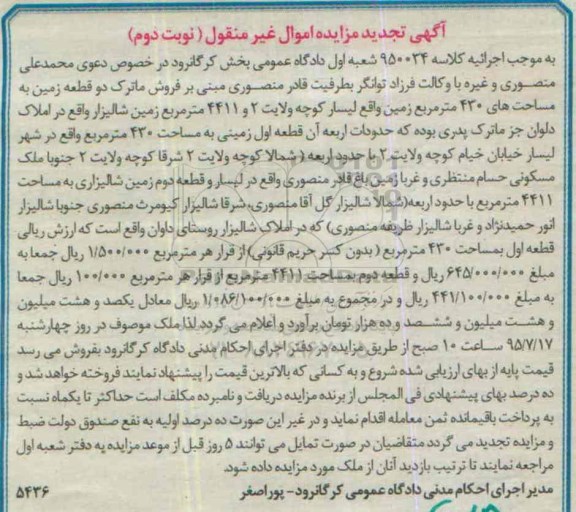 آگهی تجدید مزایده اموال غیر منقول ( نوبت دوم)
به موجب اجرائیه کلاسه ۹۵۰۰۳۴ شعبه اول دادگاه عمومی بخش کرگانرود در خصوص دعوی محمدعلی
منصوری و غیره با وکالت فرزاد توانگر بطرفیت قادر منصوری مبنی بر فروش ماترک دو قطعه زمین به
مساحت های ۴۳۰ مترمربع زمین واقع لیسار کوچه ولایت ۲ و ۴۴۱۱ مترمربع زمین شالیزار واقع در املاک
دلوان جز ماترک پدری بوده که حدودات اربعه آن قطعه اول زمینی به مساحت ۴۳۰ مترمربع واقع در شهر
لیسار خیابان خیام کوچه ولایت ۲ با حدود اربعه ( شمالا کوچه ولایت ۲ شرقا کوچه ولایت ۲ جنوبا ملک
مسکونی حسام منتظری و غربا زمین باغ قادر منصوری واقع در لیسار و قطعه دوم زمین شالیزاری به مساحت
۴۴۱۱ مترمربع با حدود اربعه(شمالاً شالیزار گل آقا منصوری، شرقا شالیزار کیومرث منصوری جنوبا شالیزار
انور حمیدنژاد و غربا شالیزار ظریفه منصوری) که در املاک شالیزار روستای داوان واقع است که ارزش ریالی
قطعه اول بمساحت ۴۳۰ مترمربع ( بدون کسر حریم قانونی) از قرار هر مترمربع ۱/۵۰۰/۰۰۰ ریال جمعا به
مبلغ ۶۴۵/۰۰۰/۰۰۰ ریال و قطعه دوم بمساحت ۴۴۱۱ مترمربع از قرار هر مترمربع ۱۰۰/۰۰۰ ریال جمعا
به مبلغ ۴۴۱/۱۰۰/۰۰۰ ریال و در مجموع به مبلغ ۱/۰۸۶/۱۰۰/۰۰۰ ریال معادل یکصد و هشت میلیون
و هشت میلیون و ششصد و ده هزار تومان برآورد و اعلام می گردد لذا ملک موصوف در روز چهارشنبه
۹۵/۷/۱۷ ساعت ۱۰ صبح از طریق مزایده در دفتر اجرای احکام مدنی دادگاه کرگانرود بفروش می رسد
قیمت پایه از بهای ارزیابی شده شروع و به کسانی که بالاترین قیمت را پیشنهاد نمایند فروخته خواهد شد و
ده درصد بهای پیشنهادی فی المجلس از برنده مزایده دریافت و نامبرده مکلف است حداکثر تا یکماه نسبت
به پرداخت باقیمانده ثمن معامله اقدام نماید و در غیر این صورت ده درصد اولیه به نفع صندوق دولت ضبط
و مزایده تجدید می گردد متقاضیان در صورت تمایل می توانند ۵ روز قبل از موعد مزایده به دفتر شعبه اول
مراجعه نمایند تا ترتیب بازدید آنان از ملک مورد مزایده داده شود.
مدیر اجرای احکام مدنی دادگاه عمومی کرگانرود- پوراصغر
۵۴۳۶